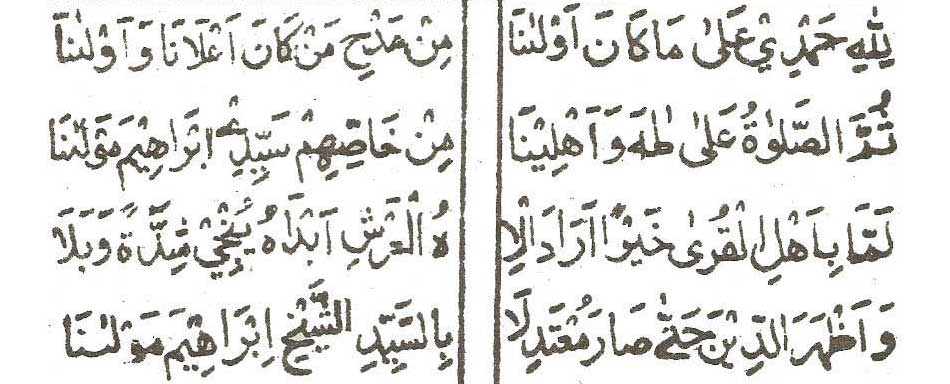 لِلّٰهِ حَمْدِيْ عَلٰى مَا كَانَ اَوْلٰنَا مِنْ مَدْحِ مَنْ كَانَ اَعْلَانَا وَاَوْلٰنَا
ثُمَّ الصَّلٰوةُ عَلٰى طٰهَ وَاَهْلِيْنَا مِنْ خَاصِّهِمْ سَيِّدِيْ اِبْرَاهِيْمَ مَوْلٰنَا
لَمَّا بِاَهْلِ الْقُرٰى خَيْرًا اَرَادَ اِلٰ هُ الْعَرْشِ اَبْدَاهُ يُنْجِيْ شِدَّةً وَبَلَا
وَاَظْهَرَ الدِّيْنَ حَتّٰى صَارَ مُعْتَدِلَا بِالسَّيِّدِ الشَّيْخِ اِبْرَاهِيْمَ مَوْلٰنَا